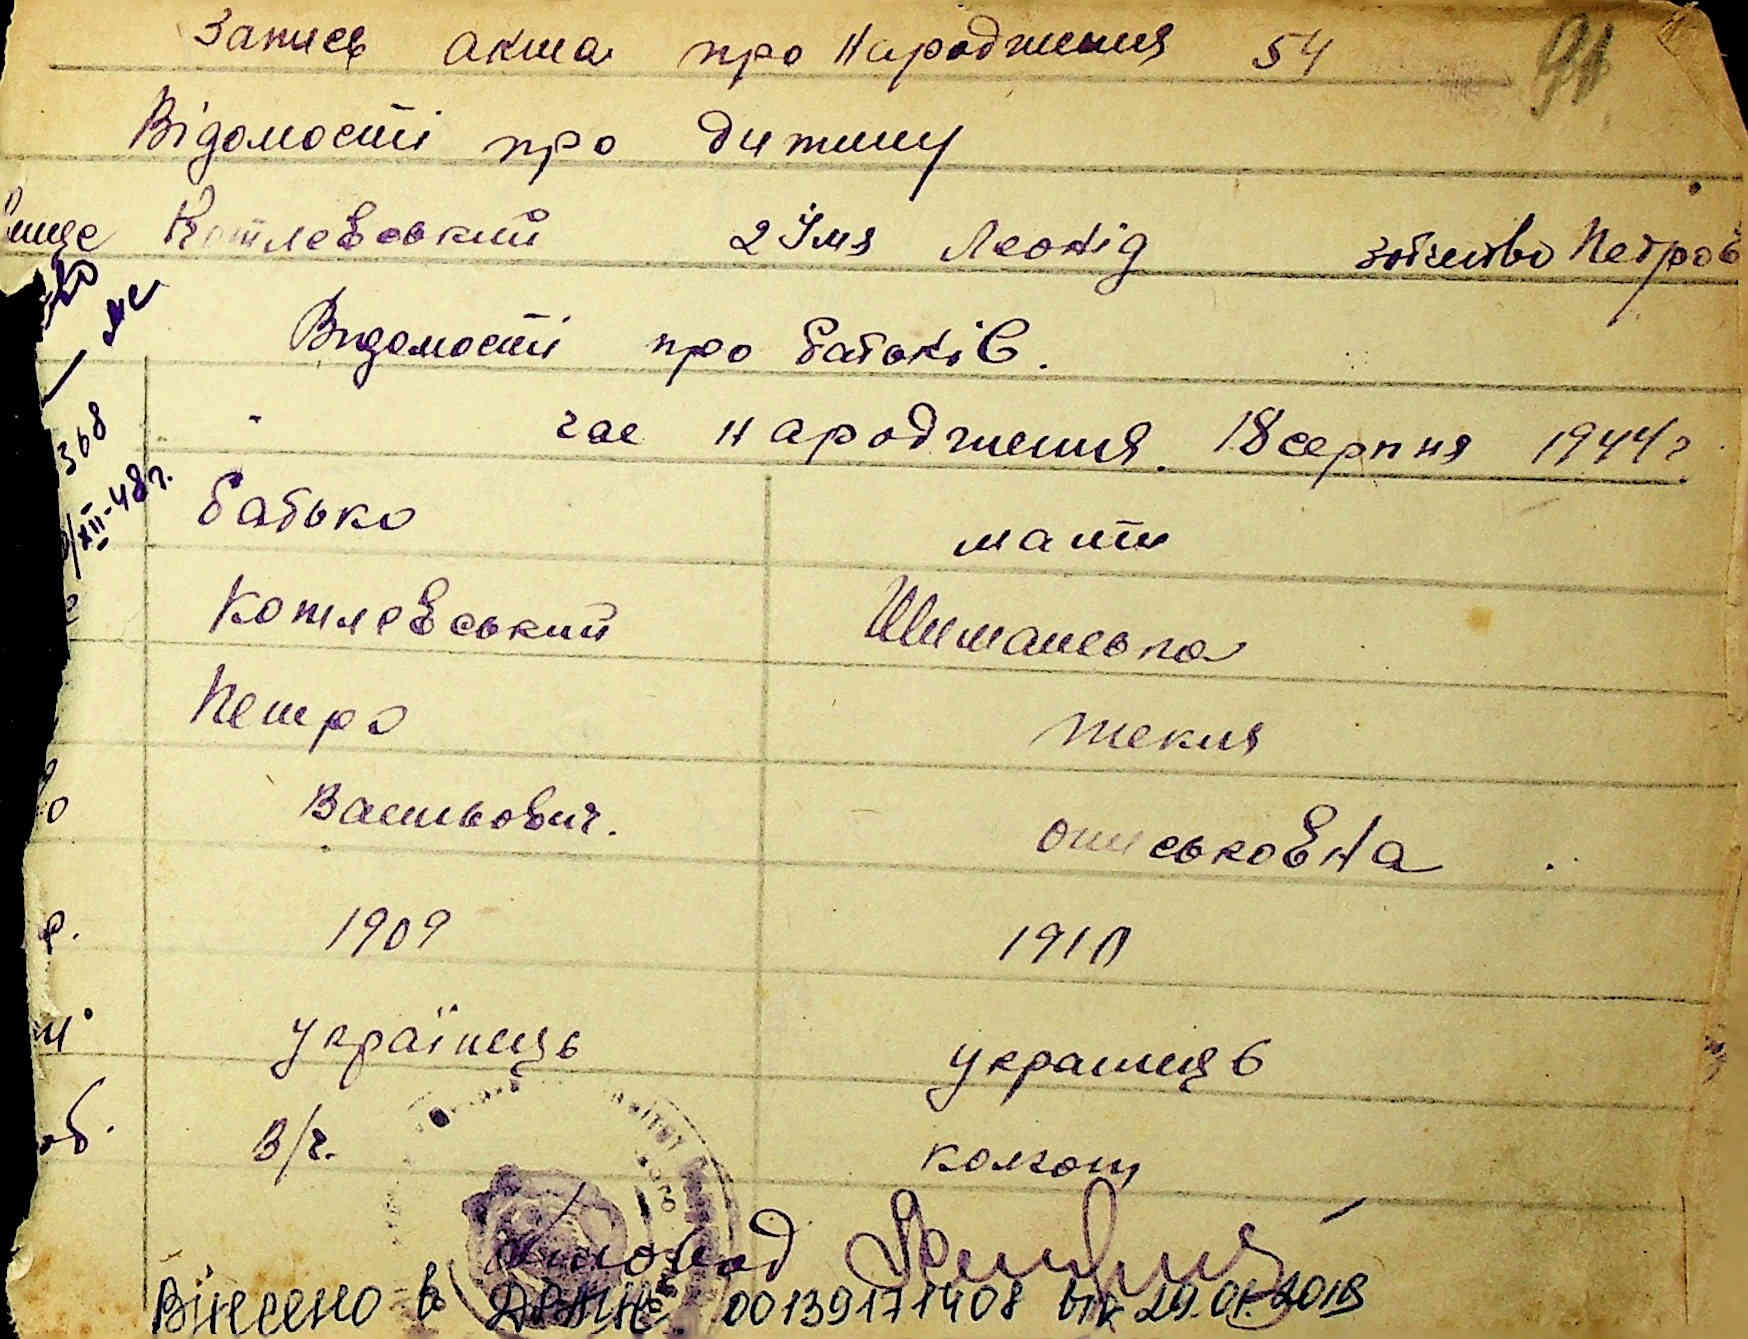 Запись акта про народження 54 91
Відомості про дитину
вище Котлевський 2 Імя Леонід 3 отчество Петров
Відомості про батьків.
час народження. 18 серпня 1944 г.
368
XII-48 г.
Батько мати
Котлевський Шиманська
Петро Текля
Васильович. Ониськовна
1909 1910
українець українець
В/ч. колгосп
Внесено в ДРАЦС 00139171408 від 29.01.2018